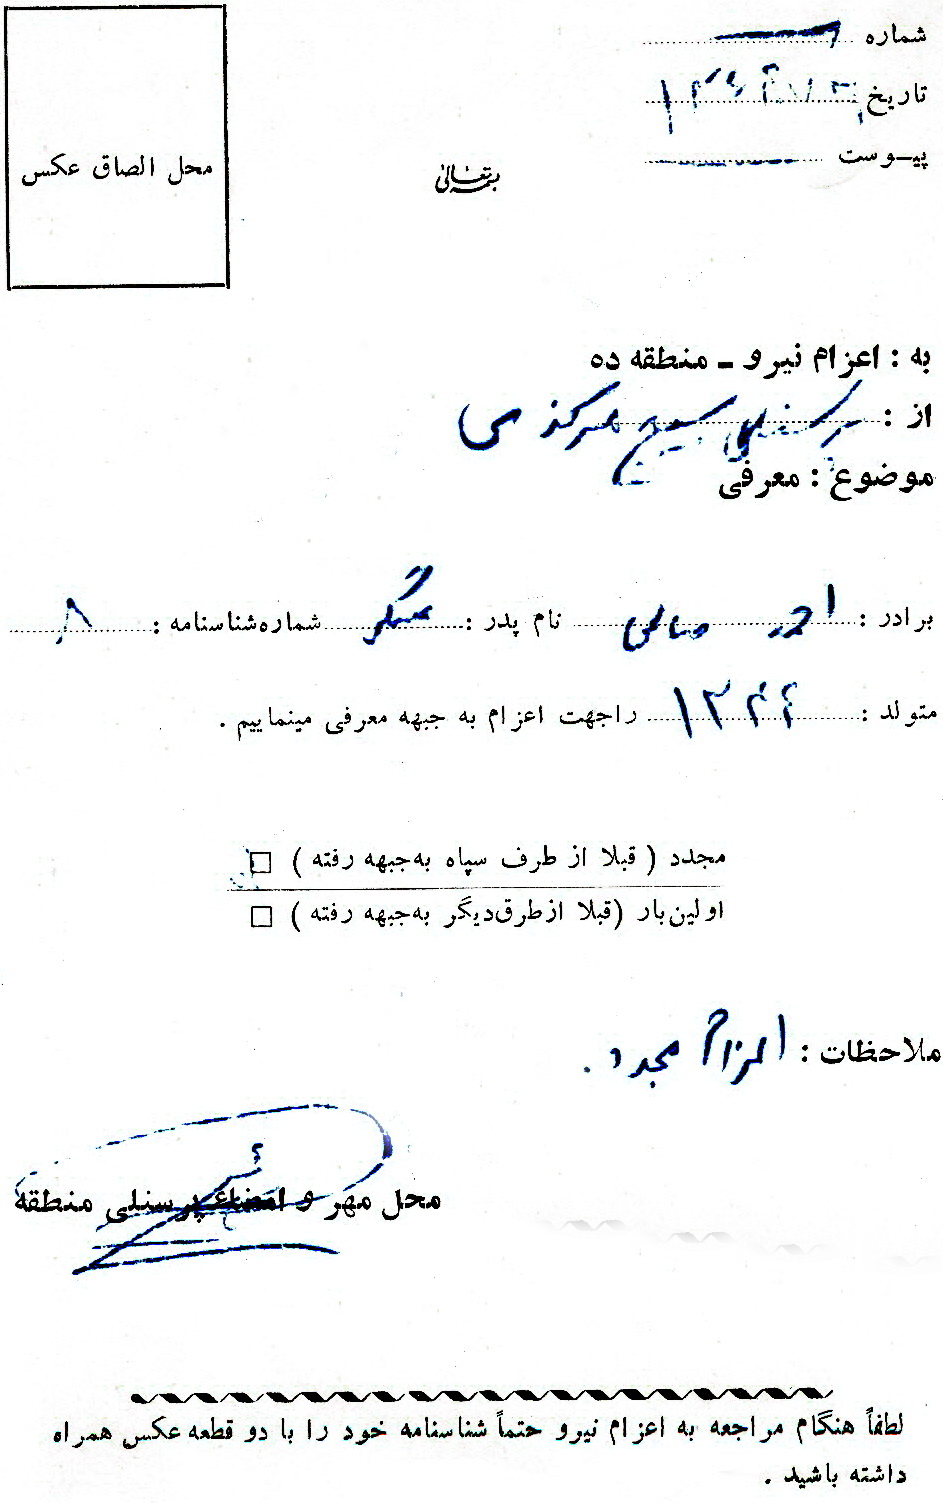 شماره
تاریخ
پیوست
محل الصاق عکس
بسمه تعالی
به : اعزام نیرو - منطقه ده
از : پرسنلی بسیج مرکزی
موضوع : معرفی
برادر : احمد صالحی نام پدر : عسگر شماره شناسنامه : ۸
متولد : ۱۳۴۴ را جهت اعزام به جبهه معرفی مینماییم .
مجدد ( قبلا از طرف سپاه به جبهه رفته )
اولین بار ( قبلا از طرق دیگر به جبهه رفته )
ملاحظات : اعزام مجدد .
محل مهر و امضاء پرسنلی منطقه
لطفاً هنگام مراجعه به اعزام نیرو حتماً شناسنامه خود را با دو قطعه عکس همراه
داشته باشید .